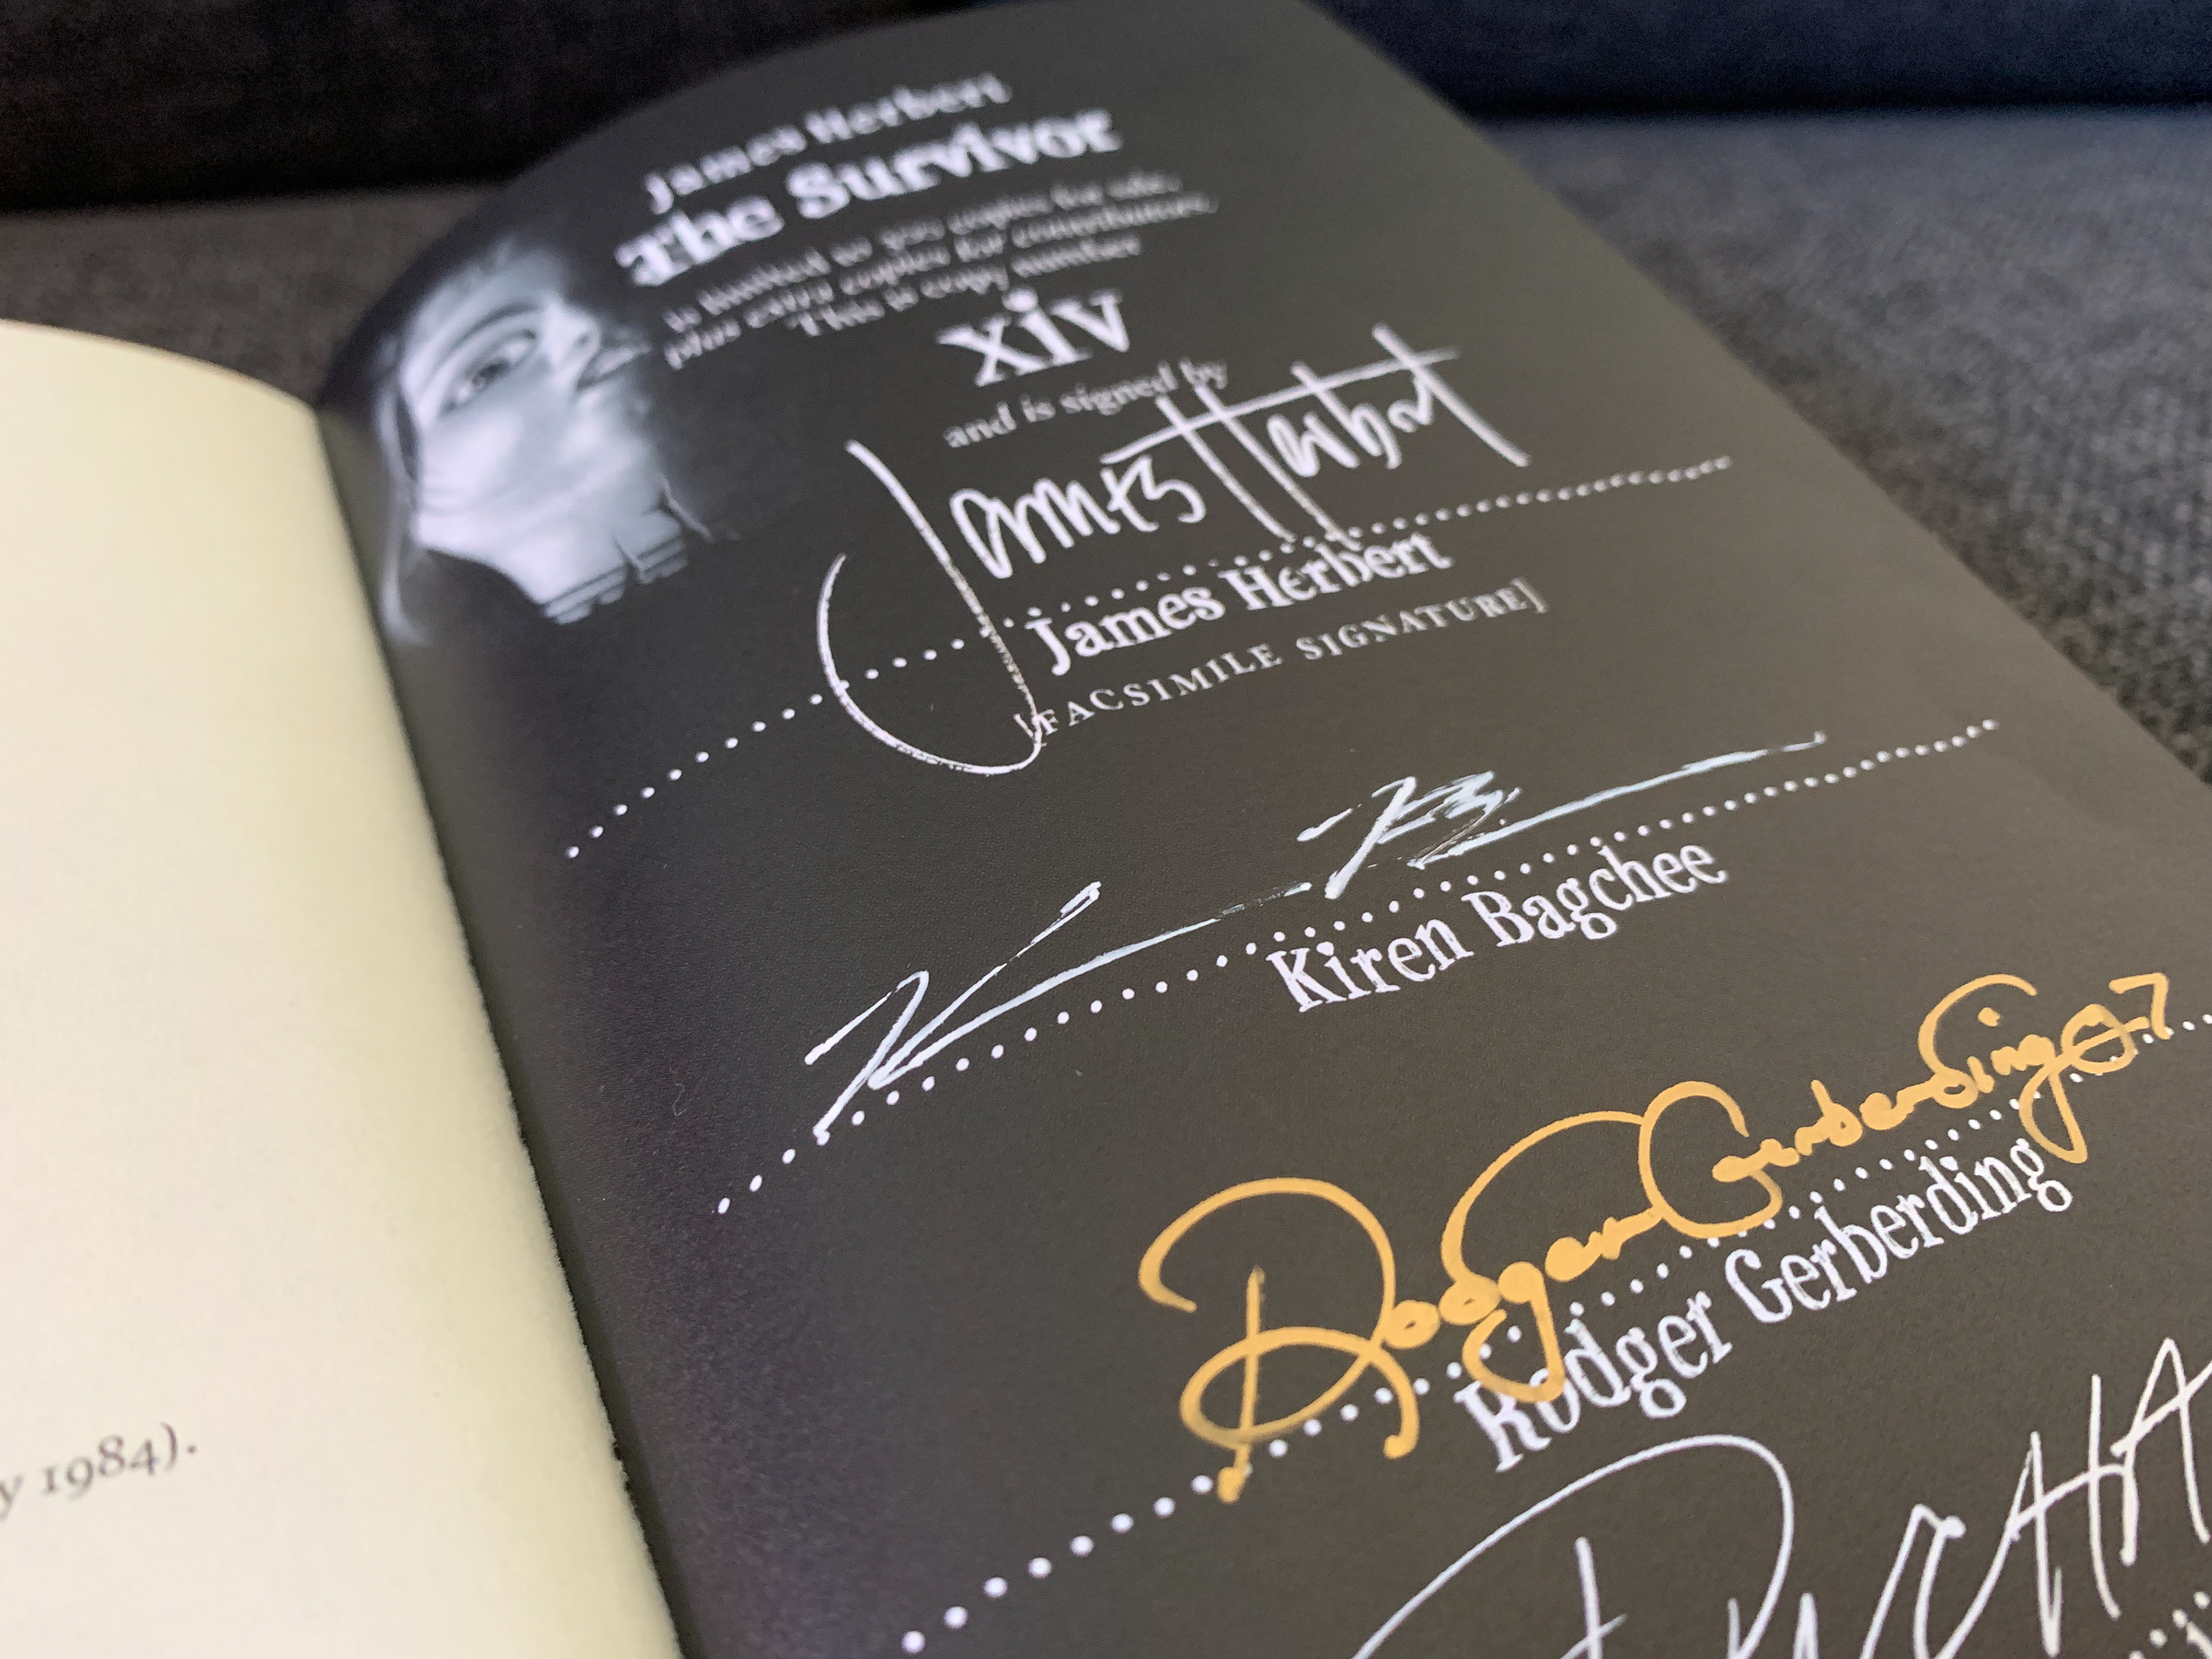 James Herbert
The Survivor
is limited to copies for sale,
plus extra copies for contributors.
This is copy number
xiv
and is signed by
James Herbert
James Herbert
[FACSIMILE SIGNATURE]
Kiren Bagchee
Rodger Gerberding 07
Rodger Gerberding
y 1984).